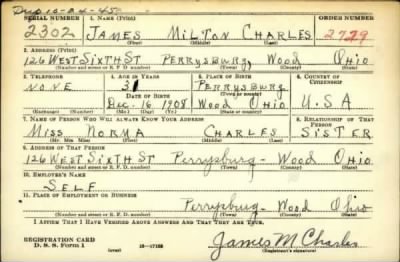 Dup 10-24-45
SERIAL NUMBER 1. NAME (Print) ORDER NUMBER
2302 JAMES MILTON CHARLES 2779
(First) (Middle) (Last)
2. ADDRESS (Print)
126 WEST SIXTH ST PERRYSBURG, WOOD OHIO
(Number and street or R. F. D. number) (Town) (County) (State)
3. TELEPHONE 4. AGE IN YEARS 5. PLACE OF BIRTH 6. COUNTRY OF CITIZENSHIP
NONE 31 PERRYSBURG
DATE OF BIRTH (Town or county)
DEC. 16 1908 WOOD OHIO U.S.A
(Exchange) (Number) (Mo.) (Day) (Yr.) (State or country)
7. NAME OF PERSON WHO WILL ALWAYS KNOW YOUR ADDRESS 8. RELATIONSHIP OF THAT PERSON
MISS NORMA CHARLES SISTER
(Mr., Mrs., Miss) (First) (Middle) (Last)
9. ADDRESS OF THAT PERSON
126 WEST SIXTH ST Perrysburg - Wood Ohio
(Number and street or R. F. D. number) (Town) (County) (State)
10. EMPLOYER'S NAME
SELF
11. PLACE OF EMPLOYMENT OR BUSINESS
Perrysburg - Wood Ohio
(Number and street or R. F. D. number) (Town) (County) (State)
I AFFIRM THAT I HAVE VERIFIED ABOVE ANSWERS AND THAT THEY ARE TRUE.
REGISTRATION CARD
D. S. S. FORM 1 James M Charles
(Registrant's signature)